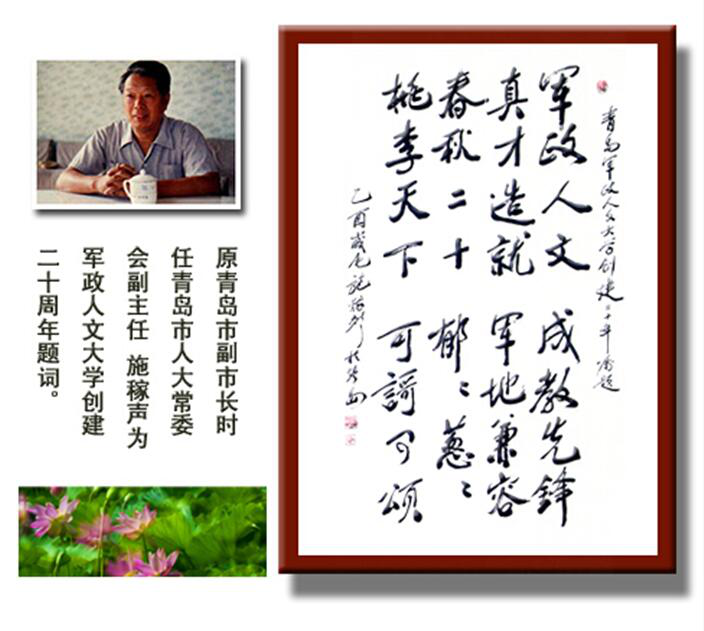 原青岛市副市长时
任青岛市人大常委
会副主任 施稼声为
军政人文大学创建
二十周年题词。
青岛军政人文大学创建二十年题
军政人文 成教先锋
真才造就 军地兼容
春秋二十 郁〻葱〻
桃李天下 可謌可颂
乙酉岁尾施稼声於青岛